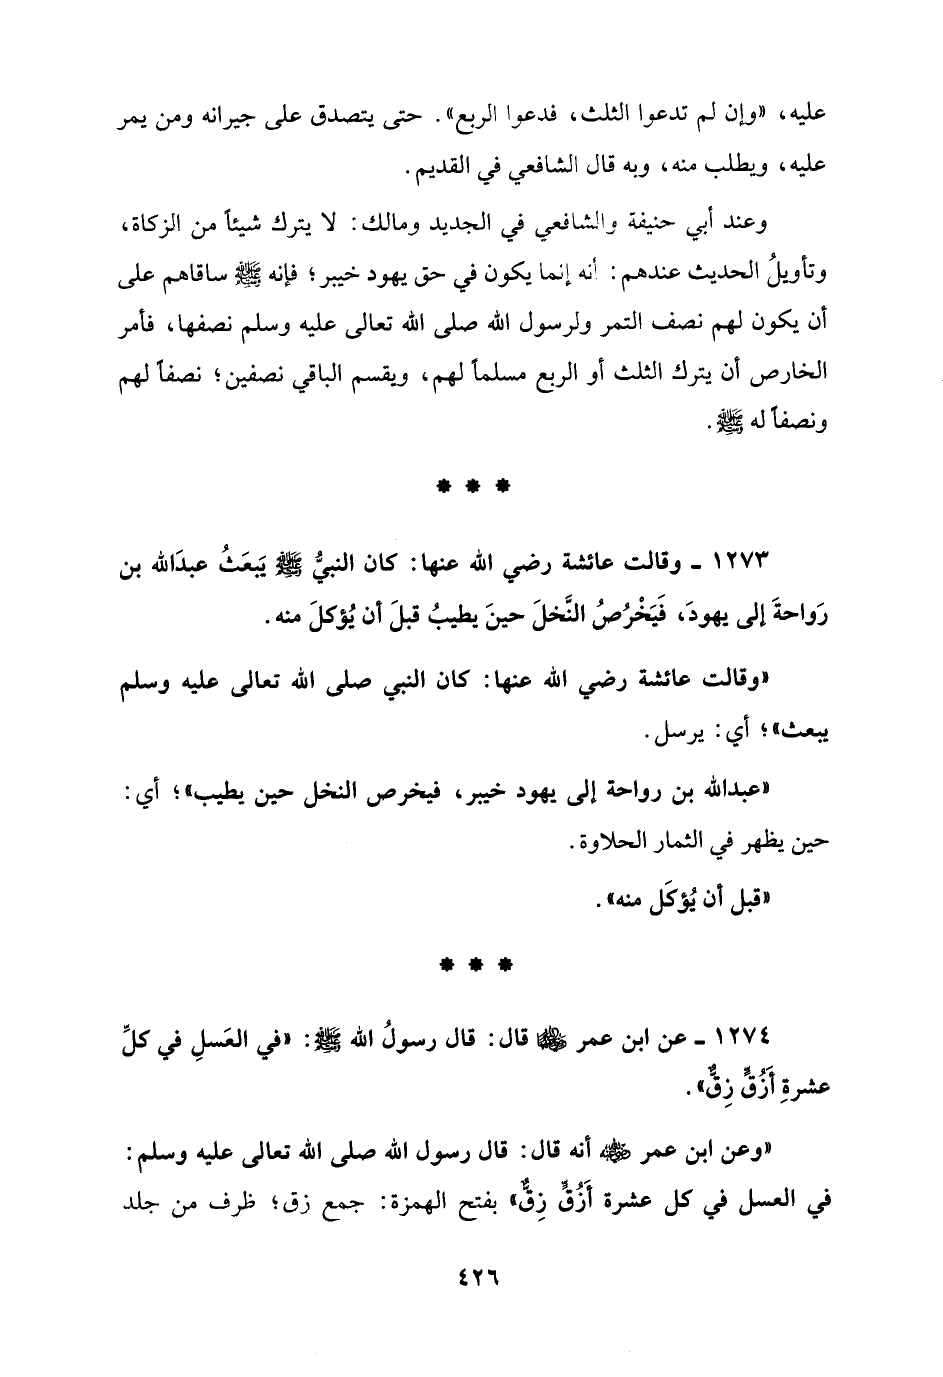 عليه، «وإن لم تدعوا الثلث، فدعوا الربع». حتى يتصدق على جيرانه ومن يمر
عليه، ويطلب منه، وبه قال الشافعي في القديم.
وعند أبي حنيفة والشافعي في الجديد ومالك: لا يترك شيئاً من الزكاة،
وتأويلُ الحديث عندهم: أنه إنما يكون في حق يهود خيبر؛ فإنه ﷺ ساقاهم على
أن يكون لهم نصف التمر ولرسول الله صلى الله تعالى عليه وسلم نصفها، فأمر
الخارص أن يترك الثلث أو الربع مسلماً لهم، ويقسم الباقي نصفين؛ نصفاً لهم
ونصفاً له ﷺ.
* * *
١٢٧٣ ـ وقالت عائشة رضي الله عنها: كان النبيُّ ﷺ يَبعَثُ عبدَالله بن
رَواحةَ إلى يهودَ، فَيَخْرُصُ النَّخلَ حينَ يطيبُ قبلَ أن يُؤكلَ منه.
«وقالت عائشة رضي الله عنها: كان النبي صلى الله تعالى عليه وسلم
يبعث»؛ أي: يرسل.
«عبدالله بن رواحة إلى يهود خيبر، فيخرص النخل حين يطيب»؛ أي:
حين يظهر في الثمار الحلاوة.
«قبل أن يُؤكَل منه».
* * *
١٢٧٤ ـ عن ابن عمر ﵁ قال: قال رسولُ الله ﷺ: «في العَسلِ في كلِّ
عشرةِ أَزُقٍّ زِقٌّ».
«وعن ابن عمر ﵁ أنه قال: قال رسول الله صلى الله تعالى عليه وسلم:
في العسل في كل عشرة أَزُقٍّ زِقٌّ» بفتح الهمزة: جمع زق؛ ظرف من جلد
٤٢٦